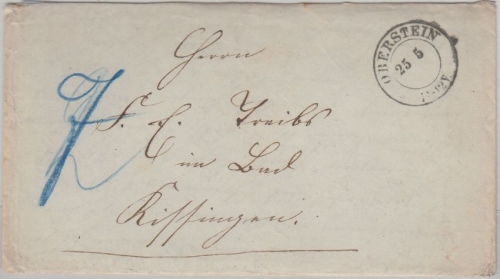 OBERSTEIN
25 5
Herrn
F. C. Treibs
im Bad
Kissingen.